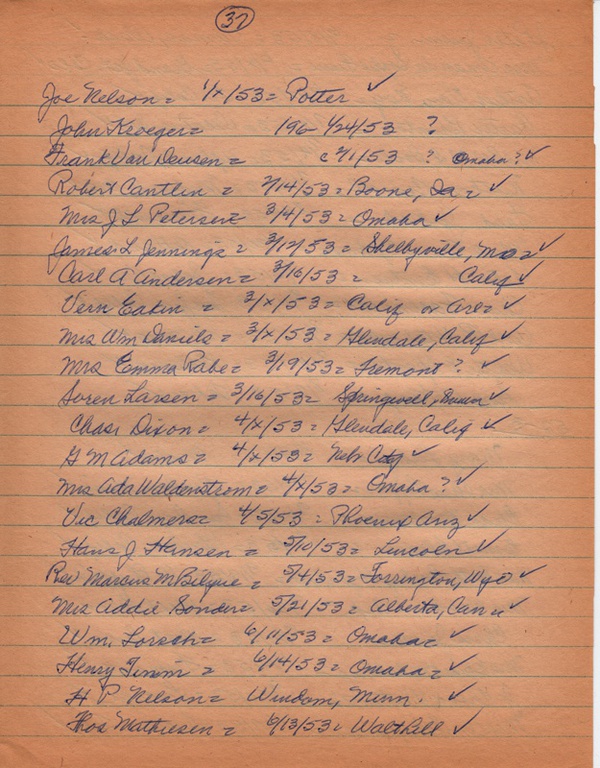 37
Joe Nelson = 1/x/53 = Potter ✓
John Kroeger = 196- 1/24/53 ?
Frank Van Deusen = c 2/1/53 ? Omaha? ✓
Robert Cantlin = 2/14/53 = Boone, Ia = ✓
Mrs J L Petersen = 3/4/53 = Omaha ✓
James L Jennings = 3/12/53 = Shelbyville, Mo = ✓
Carl A Andersen = 3/16/53 = Calif ✓
Vern Eakin = 3/x/53 = Calif or Ore = ✓
Mrs Wm Daniels = 3/x/53 = Glendale, Calif ✓
Mrs Emma Rabe = 3/19/53 = Fremont ? ✓
Soren Larsen = 3/16/53 = ✓
Chas. Dixon = 4/x/53 = Glendale, Calif ✓
G M Adams = 4/x/53 = Neb City ✓
Mrs Ada Waldenstrom = 4/x/53 = Omaha ? ✓
Vic Chalmers = 4/5/53 = Phoenix Ariz ✓
Hans J Hansen = 5/10/53 = Lincoln ✓
Rev Marcus M = 5/4/53 = Torrington, Wyo ✓
Mrs Addie Sonder = 5/21/53 = Alberta, Can = ✓
Wm. Lorsch = 6/11/53 = Omaha = ✓
Henry Timm = 6/14/53 = Omaha = ✓
H P Nelson = Windom, Minn. ✓
Thos Mathiesen = 6/13/53 = Walthill ✓